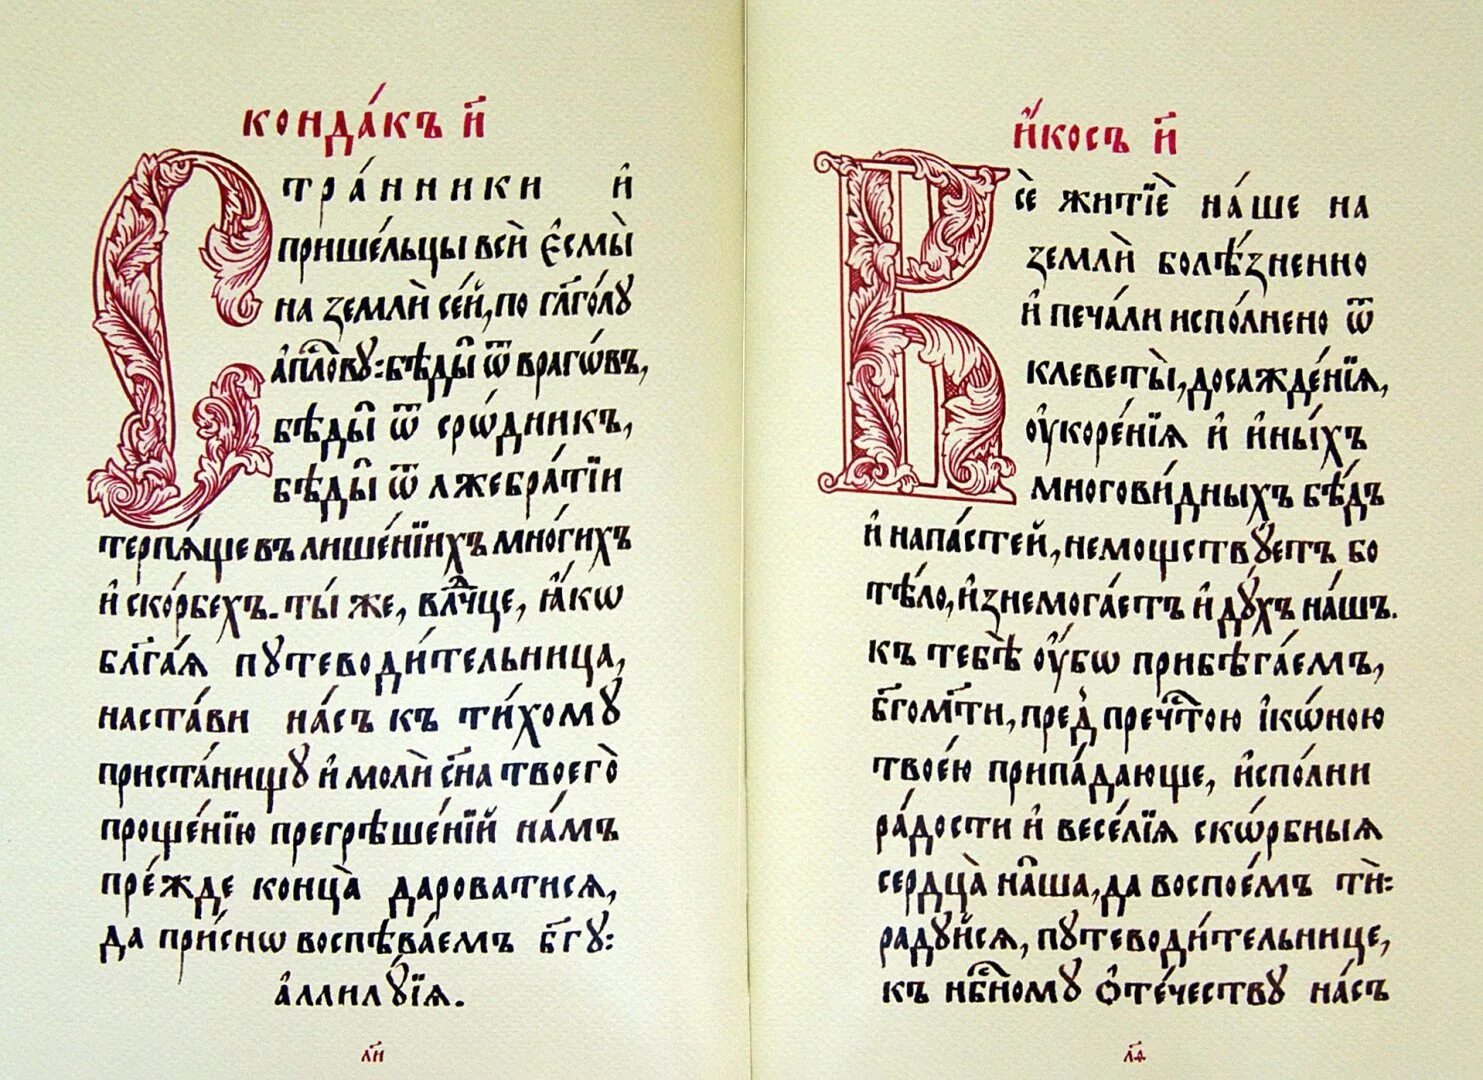 конда́къ и҃
Стра́нники и҆
прише́льцы всѝ є҆смы̀
на землѝ се́й, по гл҃го́лу
а҆пⷭ҇лову: бѣ́ды ѿ враѓѡвъ,
бѣ́ды ѿ срѡ́дникъ,
бѣ́ды ѿ лжебра́тїи
терпѧ́ще въ лише́нїихъ мно́гихъ
и҆ ско́рбехъ. ты́ же, влⷣчце, ꙗ҆́кѡ
бл҃га́ѧ путеводи́тельница,
наста́ви на́съ къ ти́хому
приста́нищу и҆ молѝ сн҃а твоего̀
проще́нїю прегрѣше́нїй на́мъ
пре́жде конца̀ дароватисѧ,
да при́снѡ воспѣва́емъ бг҃у:
а҆ллилу́їѧ.
л҃и
и҆́косъ и҃
Всѐ житїѐ на́ше на
землѝ болѣ́зненно
и҆ печа́ли испо́лнено ѿ
клеветы̀, досажде́нїѧ,
оу҆коре́нїѧ и҆ и҆ны́хъ
многови́дныхъ бѣ́дъ
и҆ напа́стей, немощствуетъ бо
тѣ́ло, и҆знемога́етъ и҆ ду́хъ на́шъ.
къ тебѣ̀ оу҆́бѡ прибѣга́емъ,
бг҃ом҃ти, пред̾ пречⷭ҇тою і҆кѡ́ною
твое́ю припа́дающе, и҆спо́лни
ра́дости и҆ весе́лїѧ скѡ́рбныѧ
сердца̀ на̑ша, да воспое́мъ тѝ:
ра́дуйсѧ, путеводи́тельнице,
къ нбⷭ҇ному ѻ҆те́честву на́съ
л҃ѳ